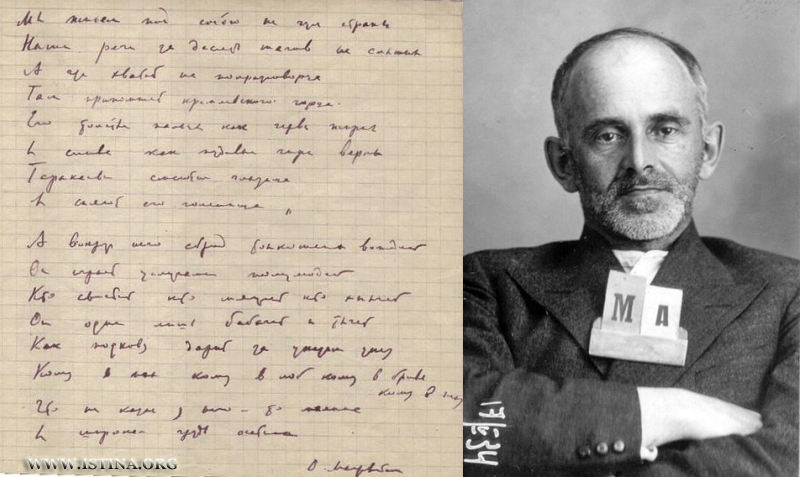 Мы живем под собою не чуя страны
Наши речи за десять шагов не слышны
А где хватит на полразговорца
Там припомнят кремлевского горца.
Его толстые пальцы как черви жирны
И слова как пудовые гири верны
Тараканьи смеются глазища
И сияют его голенища
А вокруг него сброд тонкошеих вождей
Он играет услугами полулюдей
Кто свистит кто мяучит кто хнычет
Он один лишь бабачит и тычет
Как подкову дарит за указом указ
Кому в пах кому в лоб кому в бровь
кому в глаз
Что ни казнь у него – то малина
И широкая грудь осетина
О. Мандельштам
WWW.ISTINA.ORG
М А